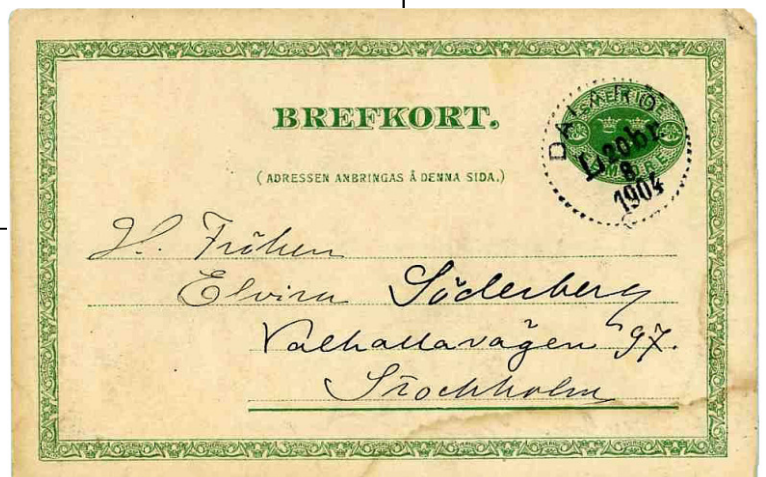 BREFKORT.
(ADRESSEN ANBRINGAS Å DENNA SIDA.)
SVERIGE
FEM ÖRE
DALARÖ
20
8
1904
Fröken
Elvira Söderberg
Valhallavägen 97.
Stockholm